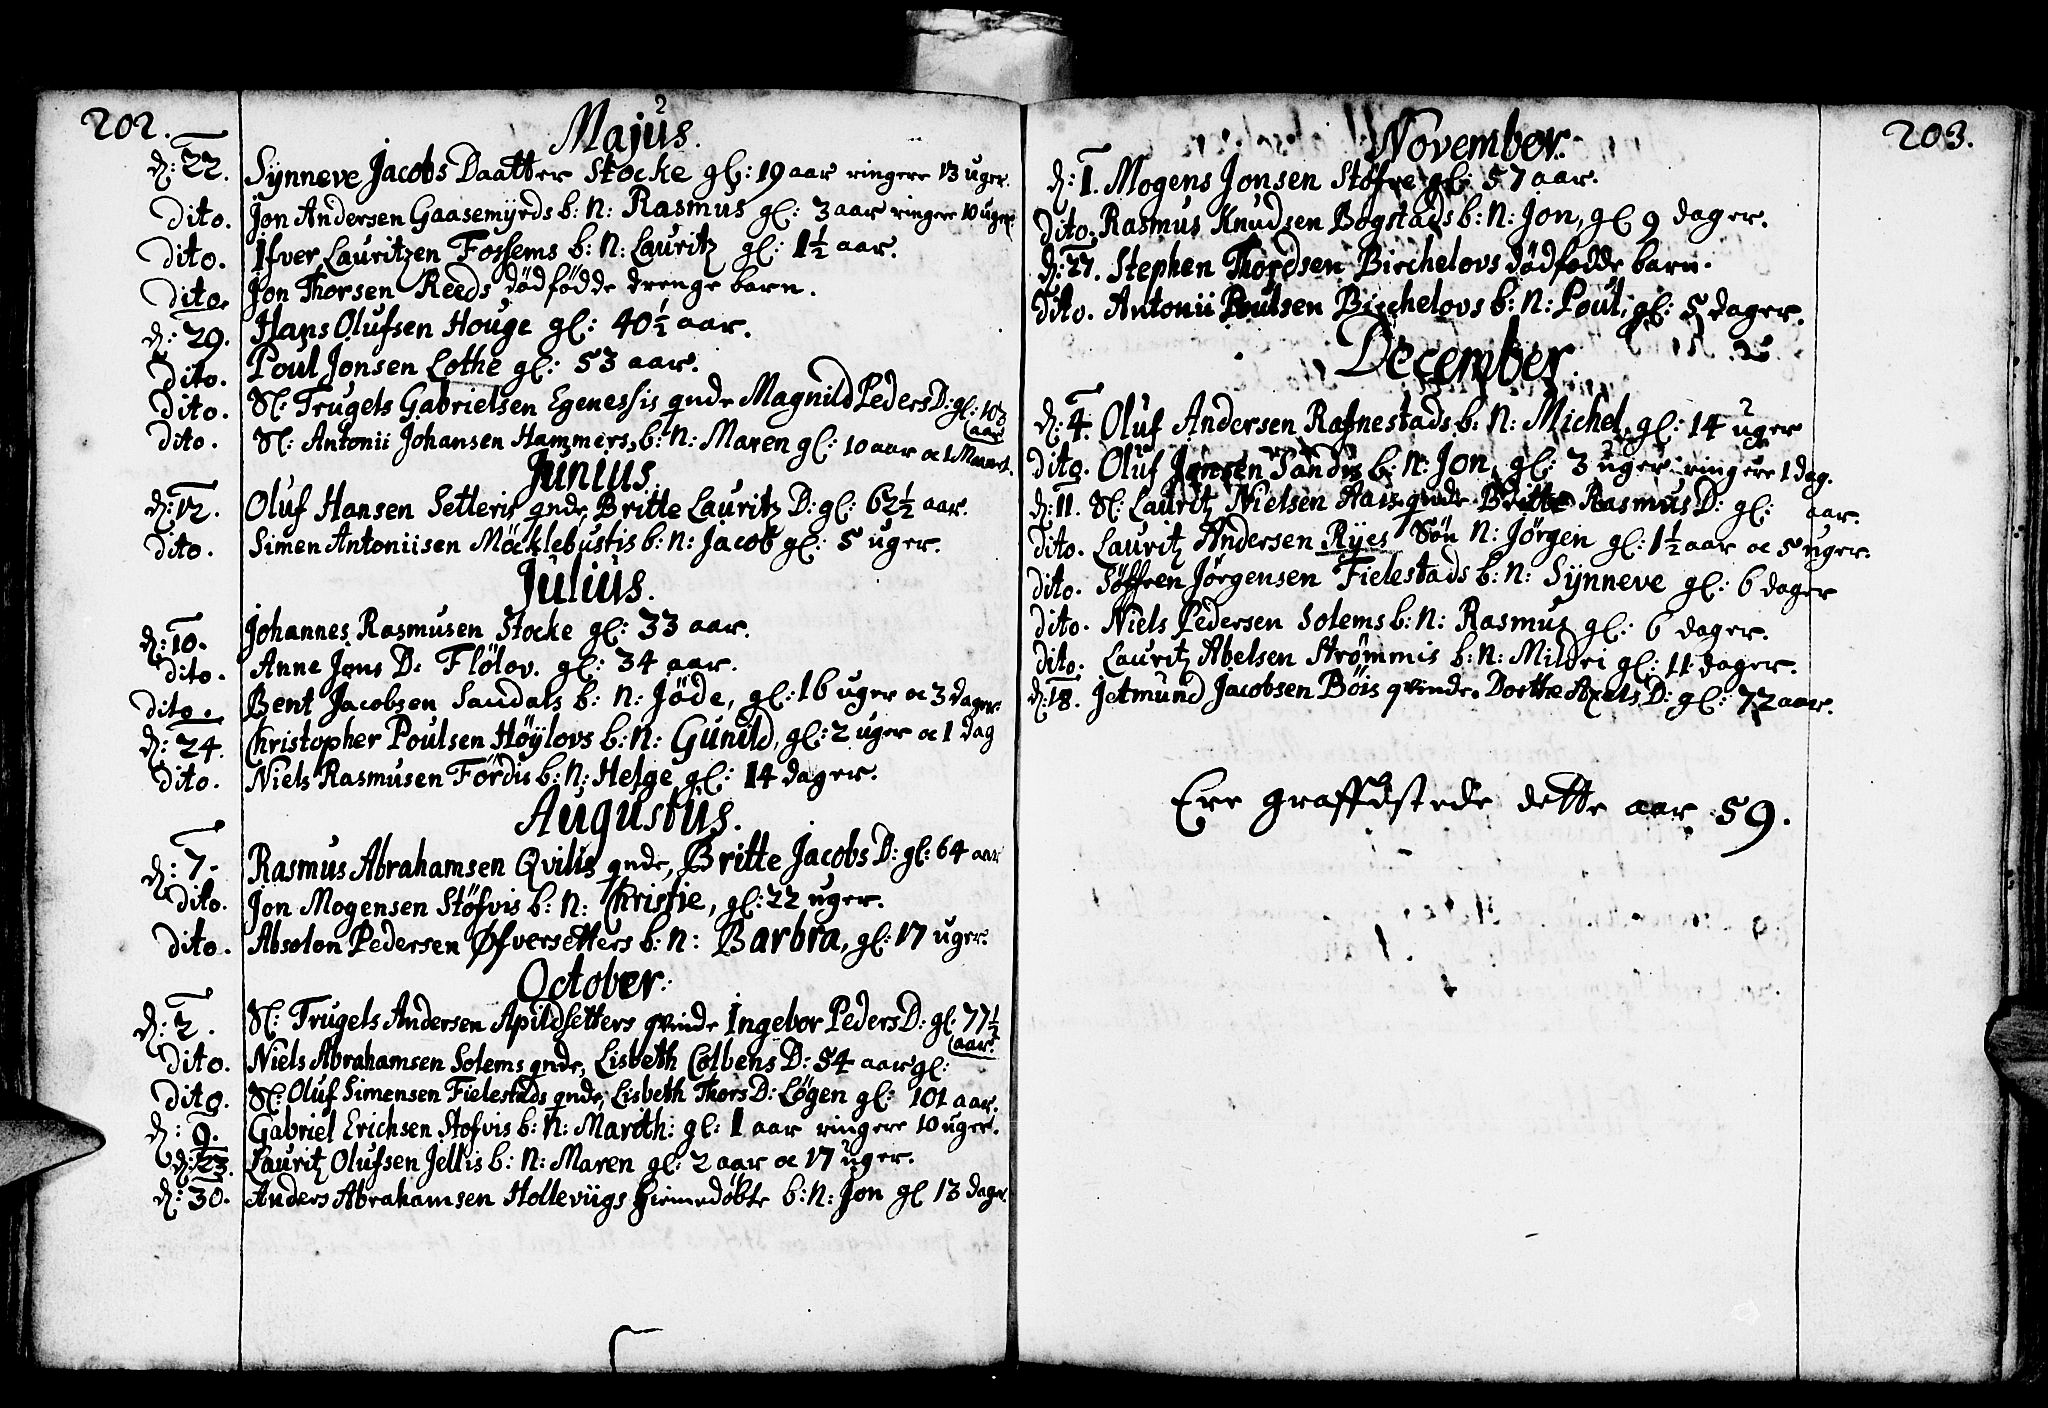 202.
Majus.
d: 22. Synneve Jacobs Daatter Stocke gl: 19 aar ringere 13 uger.
dito. Jon Andersen Gaasemyrds b: n: Rasmus gl: 3 aar ringere 10 uger.
dito. Ifver Lauritzen Fossems b: n: Lauritz gl: 1½ aar.
dito. Jon Thorsen Reeds dödfödde drenge barn.
d: 29. Hans Olufsen Houge gl: 40½ aar.
dito. Poul Jonsen Lothe gl: 53 aar.
dito. Sl: Trugels Gabrielsen Egenessis qnde Magnild Peders D: gl: 103
aar
dito. Sl: Antonii Johansen Hammers b: n: Maren gl: 10 aar oc 1 Maanet.
Junius.
d: 12. Oluf Hansen Setteris qnde, Britte Lauritz D: gl: 62½ aar.
dito. Simen Antoniisen Möcklebustis b: n: Jacob gl: 5 uger.
Julius.
d: 10. Johannes Rasmusen Stocke gl: 33 aar.
dito. Anne Jons D: Flölov. gl: 34 aar.
dito. Bent Jacobsen Sandals b: n: Jöde, gl: 16 uger oc 3 dager.
d: 24. Christopher Poulsen Höylovs b: n: Gunild, gl: 2 uger oc 1 dag
dito. Niels Rasmusen Fördis b: n: Helge gl: 14 dager.
Augustus.
d: 7. Rasmus Abrahamsen Qvilis qnde, Britte Jacobs D: gl: 64 aar
dito. Jon Mogensen Støfvis b: n: Christie, gl: 22 uger.
dito. Absolon Pedersen Øfversetters b: n: Barbra, gl: 17 uger.
October.
d: 2. Sl: Trugels Andersen Apildsetters qvinde Ingebor Peders D: gl: 77½
aar.
dito. Niels Abrahamsen Solems qnde, Lisbeth Colbens D: 54 aar gl:
dito. Sl: Oluf Simensen Fielestads qnde, Lisbeth Thors D: Løgen gl: 101 aar.
d: 9. Gabriel Erichsen Stofvis b: n: Maroth: gl: 1 aar ringere 10 uger.
d: 23. Lauritz Olufsen Jellis b: n: Maren gl: 2 aar oc 17 uger.
d: 30. Anders Abrahamsen Hollevügs hiemedøbte b: n: Jon gl 13 dager.
203.
November.
d: 1. Mogens Jonsen Støfre gl: 57 aar.
dito. Rasmus Knudsen Bogstads b: n: Jon, gl 9 dager.
d: 27. Stephen Thordsen Birchelovs dödfødde barn.
dito. Antonii Poulsen Birchelovs b: n: Poul, gl: 5 dager.
December.
d: 4. Oluf Andersen Rafnestads b: n: Michel, gl: 14 uger
dito. Oluf Jonsen Sandis b: n: Jon, gl: 3 uger ringere 1 dag.
d: 11. Sl: Lauritz Nielsen qnde Britte Rasmus D: gl: aar.
dito. Lauritz Andersen Ryes Søn n: Jørgen gl: 1½ aar oc 5 uger.
dito. Söffren Jørgensen Fielestads b: n: Synneve gl: 6 dager
dito. Niels Pedersen Solems b: n: Rasmus gl: 6 dager.
dito. Lauritz Abelsen Strømmis b: n: Mildri gl: 11 dager.
d: 18. Jetmund Jacobsen Böis qvinde. Dorthe Axels D: gl: 72 aar.
Ere graffdstede dette aar 59.